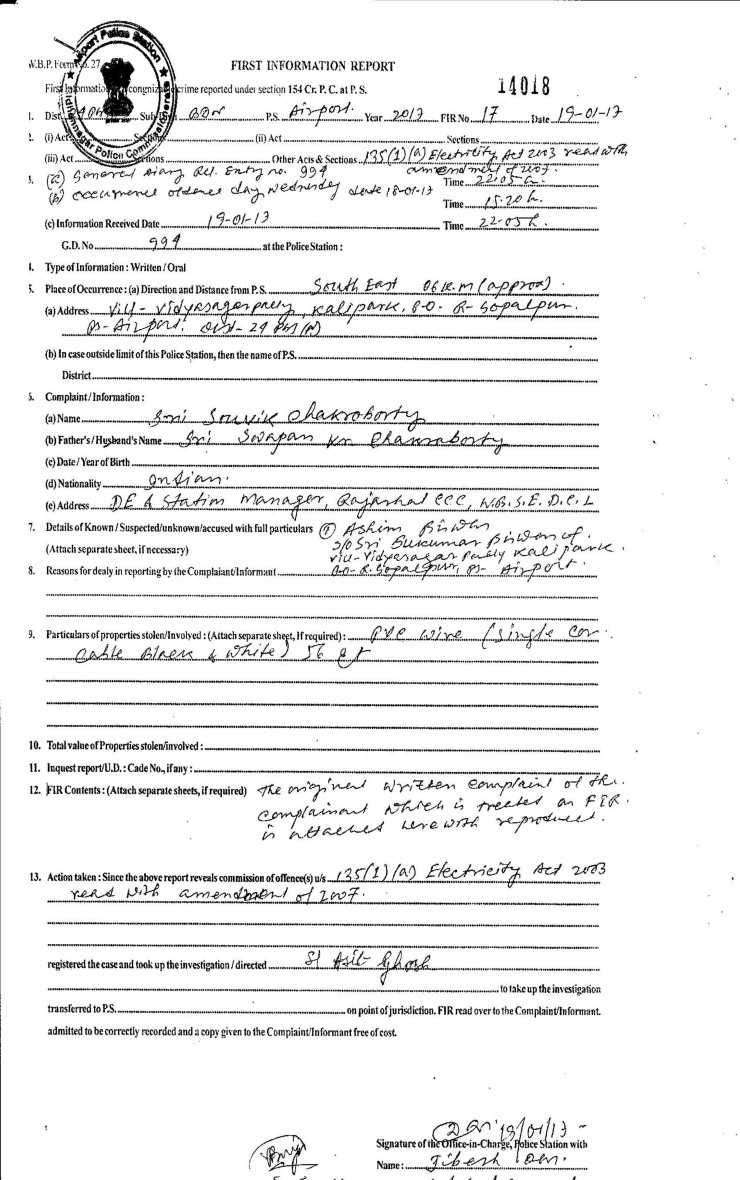 Airport Police Station
Bidhannagar Police Commissionerate
W.B.P. Form No. 27
FIRST INFORMATION REPORT
14018
First Information of cognizable crime reported under section 154 Cr. P. C. at P. S.
1. Dist. Sub Divn. BDN P.S. Airport. Year 2017 FIR No 17 Date 19-01-17
2. (i) Act Sections (ii) Act Sections
(iii) Act Sections Other Acts & Sections 135(1)(a) Electricity Act 2003 read with
amendment of 2007.
3. (a) General Diary Ref. Entry no. 994 Time 22.05 h.
(b) occurrence of dence day, Wednesday date 18-01-17
Time 15.20 h.
(c) Information Received Date 19-01-17 Time 22.05 h.
G.D. No 994 at the Police Station :
4. Type of Information : Written / Oral
5. Place of Occurrence : (a) Direction and Distance from P. S. South East 06 K.m (approx).
(a) Address Vill- Vidyasagarpally, Kalipark, P.O- R- Gopalpur.
PS- Airport. Dist- 24 PGS (N)
(b) In case outside limit of this Police Station, then the name of P.S.
District
6. Complaint / Information :
(a) Name Sri Souvik Chakroborty
(b) Father's / Husband's Name Sri Swapan Kr Chakraborty
(c) Date / Year of Birth
(d) Nationality Indian.
(e) Address DE & Station Manager, Rajarhat CCC, W.B.S.E.D.C.L
7. Details of Known / Suspected/unknown/accused with full particulars Ashim Biswas
(Attach separate sheet, if necessary) S/O Sri Sukumar Biswas of.
Vill- Vidyasagar Pally Kalipark.
8. Reasons for dealy in reporting by the Complaiant/Informant P.O- R. Gopalpur, PS- Airport.
9. Particulars of properties stolen/Involved : (Attach separate sheet, If required) : PVC wire (single cor
cable Black & White) 56 ft
10. Total value of Properties stolen/involved :
11. Inquest report/U.D. : Cade No., if any :
12. FIR Contents : (Attach separate sheets, if required) The original written complaint of the.
complainant which is treated as FIR.
is attached herewith reproduced.
13. Action taken : Since the above report reveals commission of offence(s) u/s 135(1)(a) Electricity Act 2003
read with amendment of 2007.
registered the case and took up the investigation / directed SI Asit Ghosh
to take up the investigation
transferred to P.S. on point of jurisdiction. FIR read over to the Complaint/Informant.
admitted to be correctly recorded and a copy given to the Complaint/Informant free of cost.
19/01/17
Signature of the Office-in-Charge, Police Station with
Name :